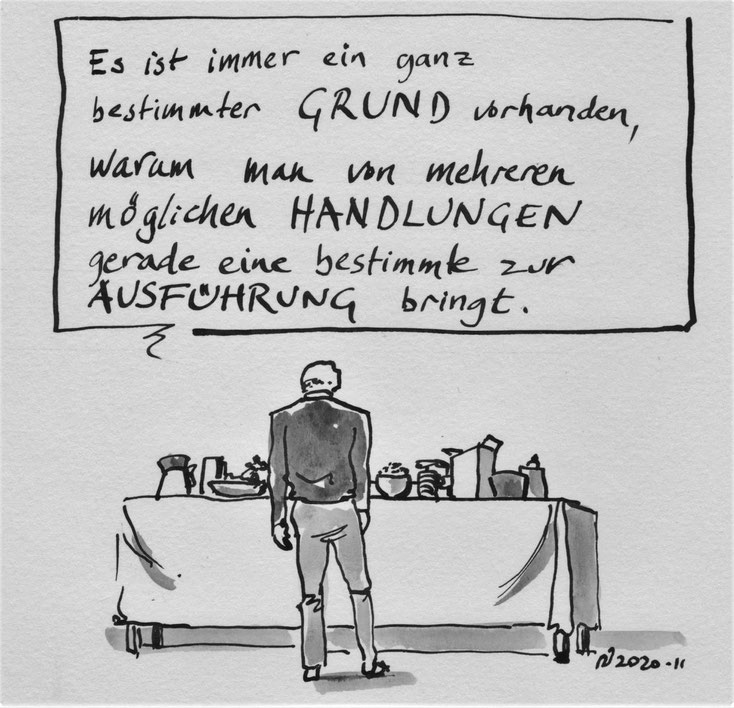 Es ist immer ein ganz
bestimmter GRUND vorhanden,
warum man von mehreren
möglichen HANDLUNGEN
gerade eine bestimmte zur
AUSFÜHRUNG bringt.
2020-11